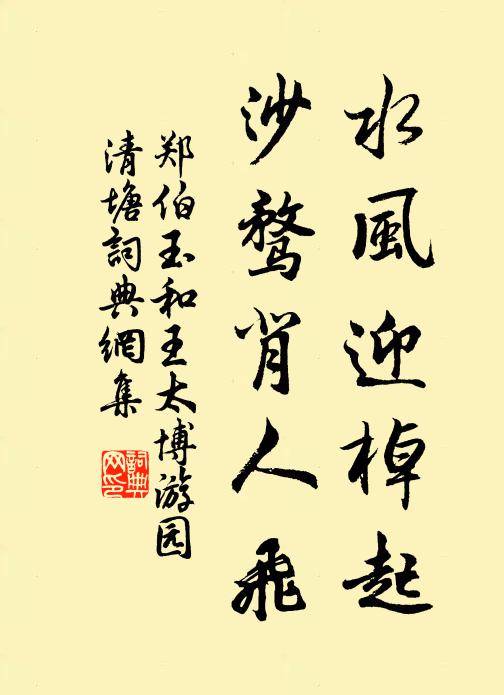 水風迎棹起
沙鶩背人飛
郑伯玉和王太博游园
清塘詞典網集
詞典网印